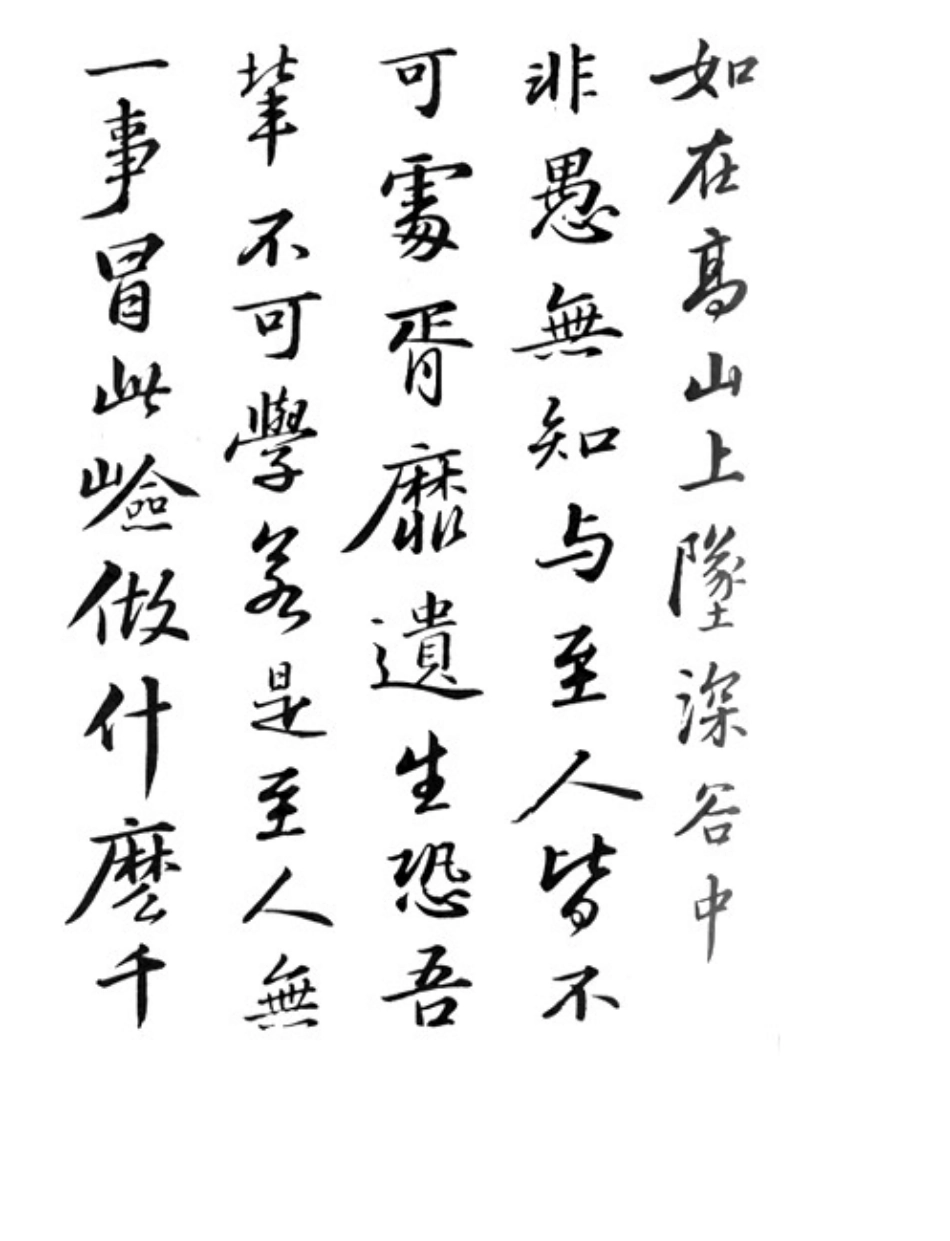 如在高山上墜深谷中
非愚無知与至人皆不
可處胥靡遺生恐吾
輩不可學若是至人無
一事冒此嶮做什麽千